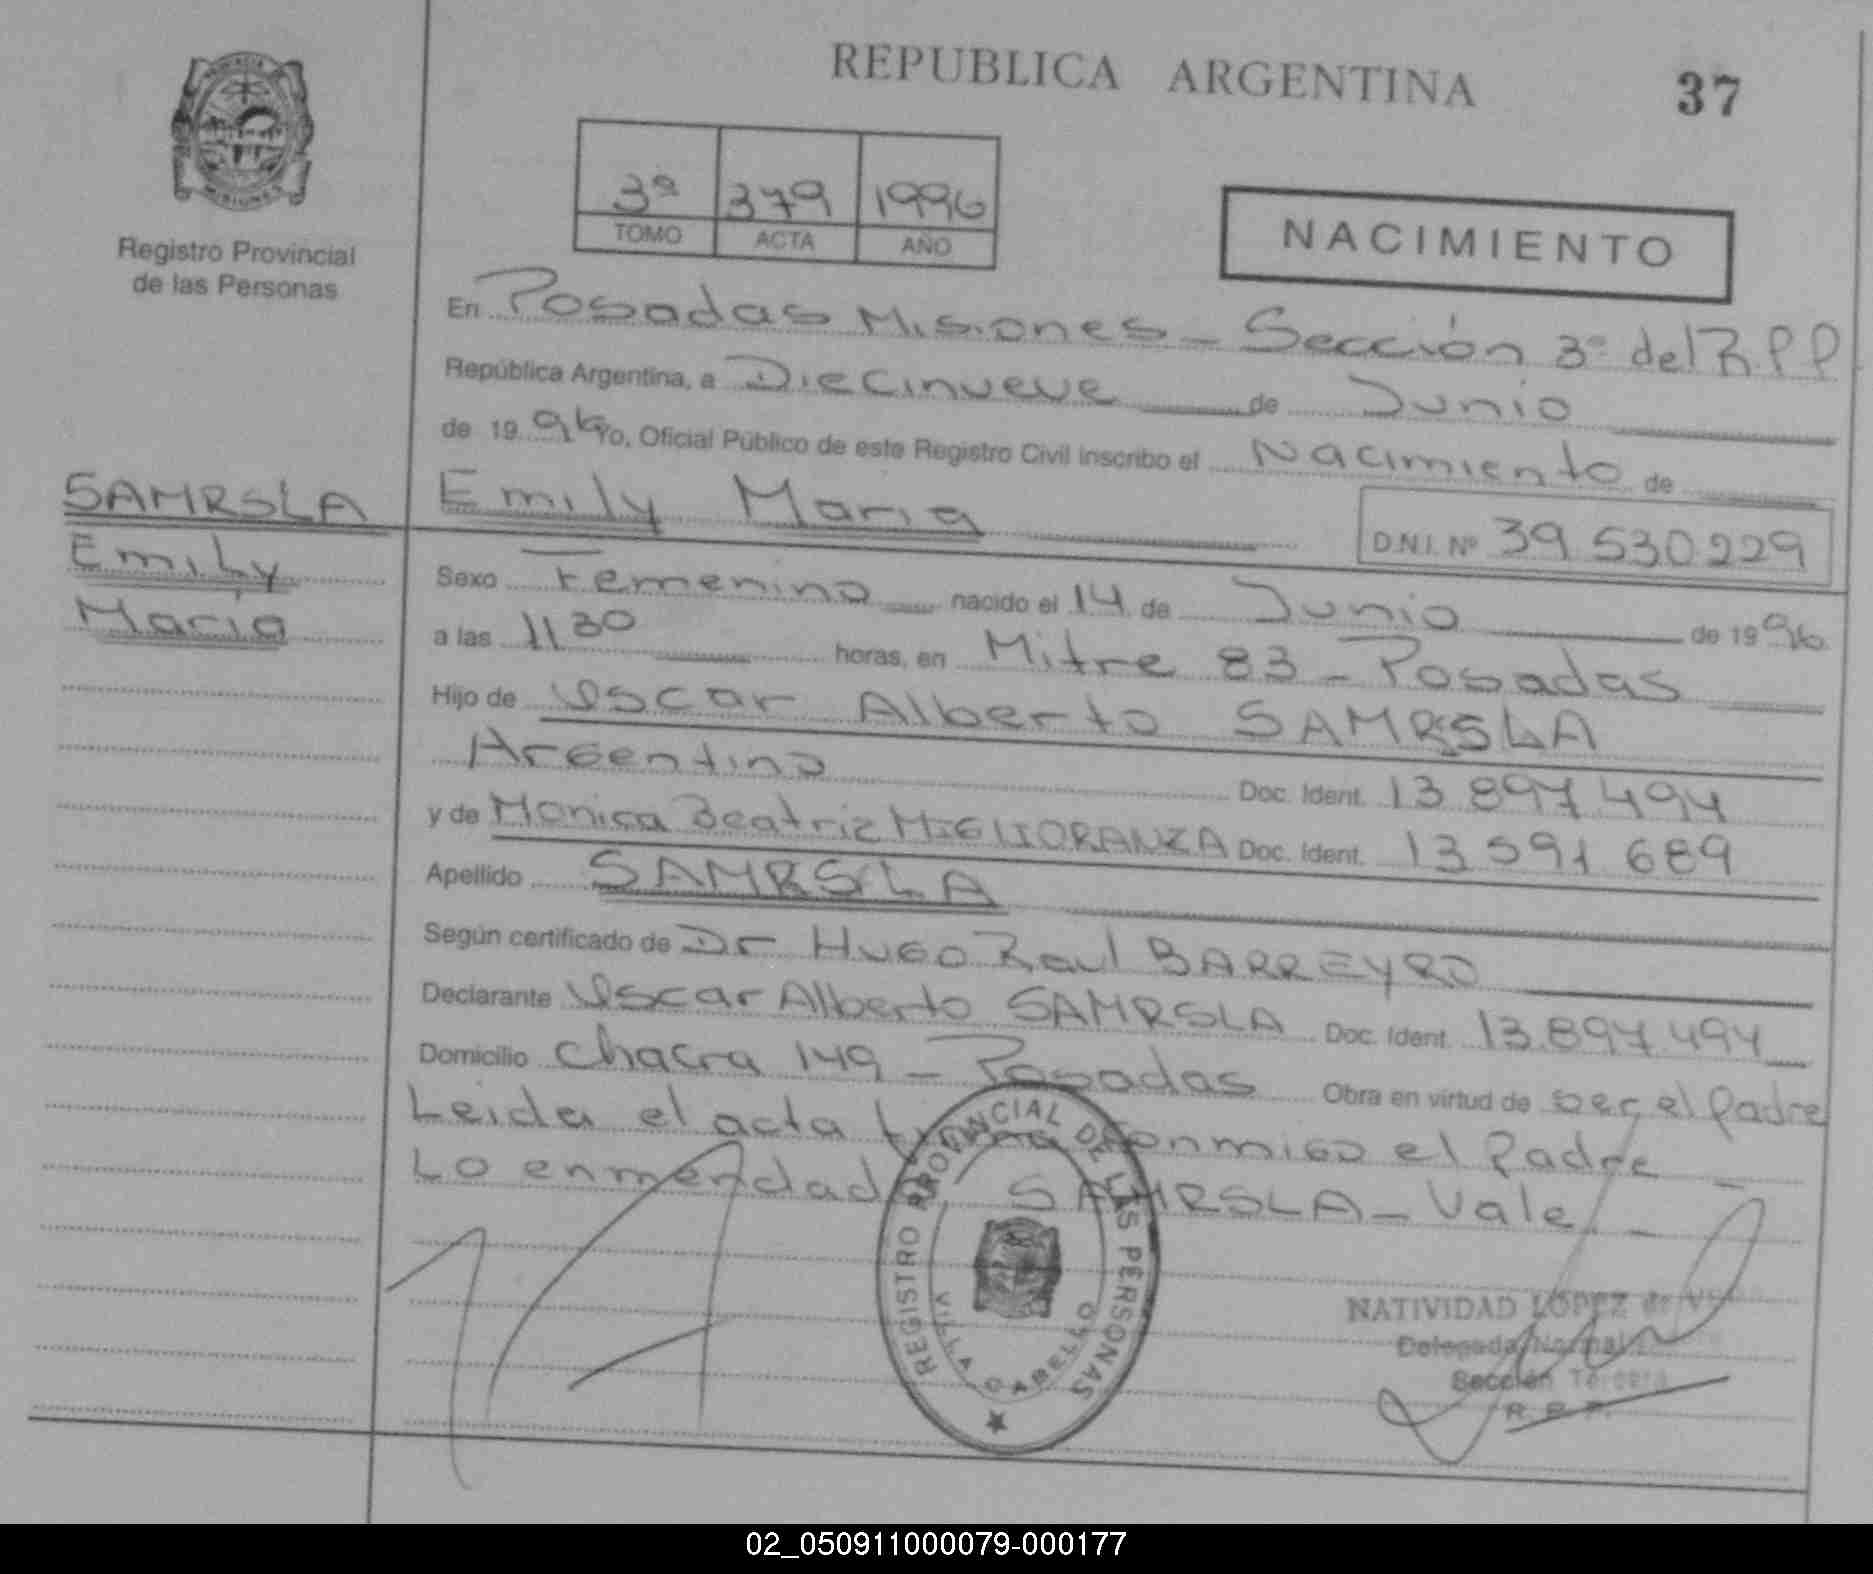 REPUBLICA ARGENTINA
37
PROVINCIA
MISIONES
Registro Provincial
de las Personas
3ª 379 1996
TOMO ACTA AÑO
NACIMIENTO
En Posadas Misiones - Sección 3ª del R.P.P
República Argentina, a Diecinueve de Junio
de 19 96 Yo, Oficial Público de este Registro Civil inscribo el Nacimiento de
SAMRSLA
Emily
María
Emily Maria
D.N.I. Nº 39.530.229
Sexo Femenino nacido el 14 de Junio de 1996
a las 11 30 horas, en Mitre 83 - Posadas
Hijo de Oscar Alberto SAMRSLA
Argentino Doc. Ident. 13.897.494
y de Monica Beatriz MIGLIORANZA Doc. Ident. 13.591.689
Apellido SAMRSLA
Según certificado de Dr Hugo Raul BARREYRO
Declarante Oscar Alberto SAMRSLA Doc. Ident. 13.897.494
Domicilio Chacra 149 - Posadas Obra en virtud de ser el Padre
Leida el acta firma conmigo el Padre -
Lo enmendado SAMRSLA - Vale -
REGISTRO PROVINCIAL DE LAS PERSONAS
VILLA CABELLO
NATIVIDAD LÓPEZ de
Delegada Normal
Sección Tercera
R. P. P.
02_050911000079-000177